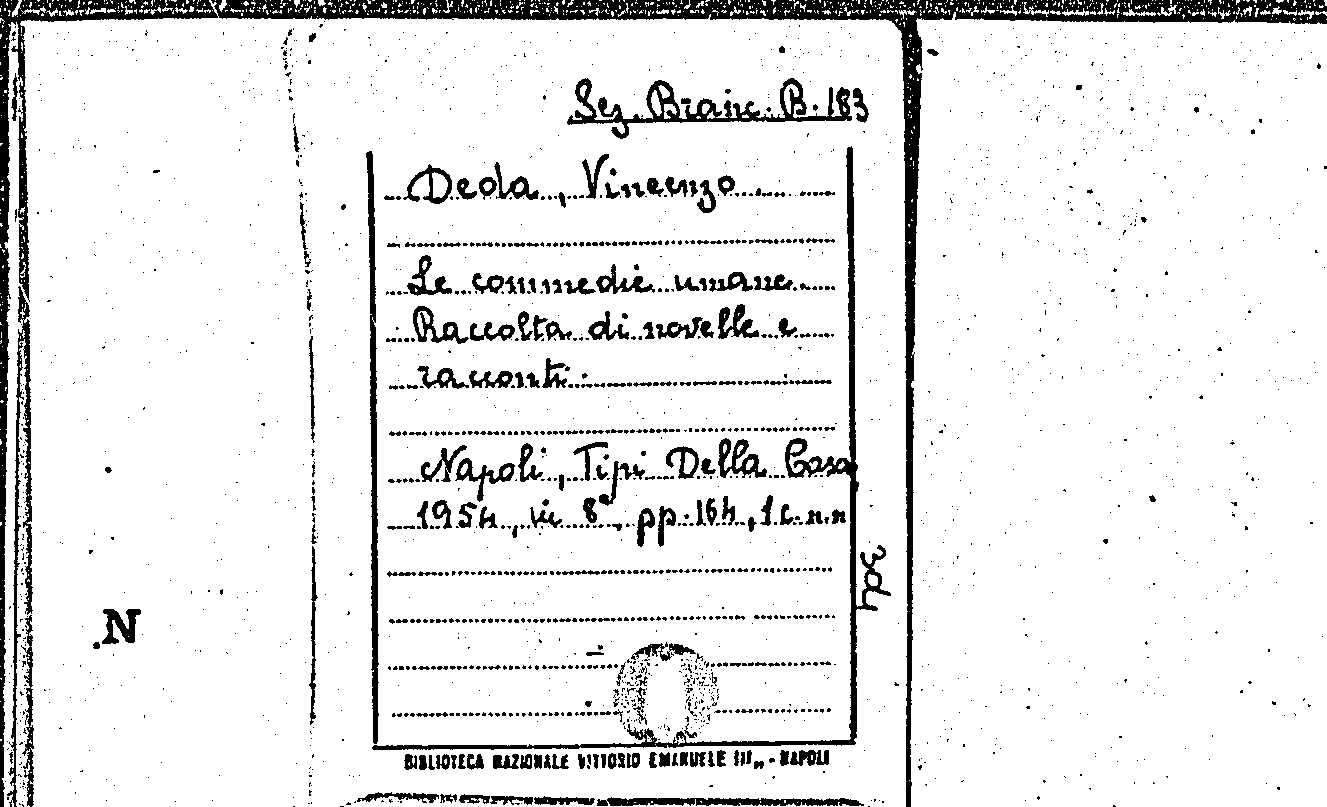 Sez. Branc. B. 183
Deola, Vincenzo.
Le commedie umane.
Raccolta di novelle e
racconti.
Napoli, Tipi Della Casa
1954, in 8°, pp. 164, 1 c. n. n
.N
BIBLIOTECA NAZIONALE VITTORIO EMANUELE III„ - NAPOLI